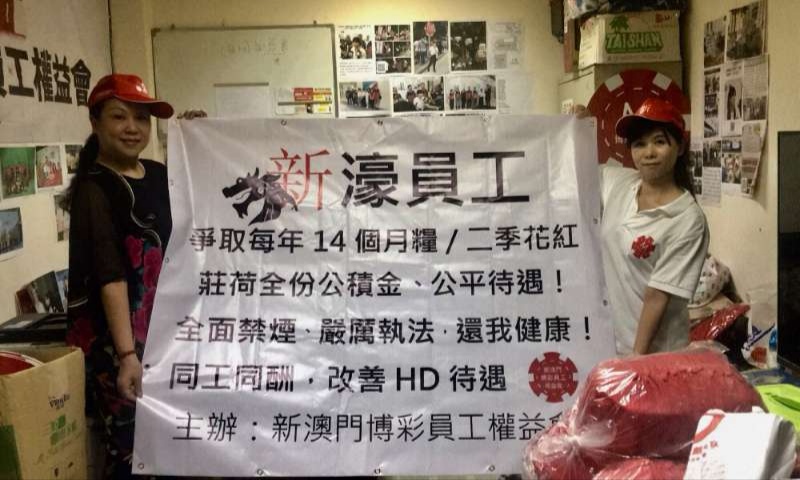 員工權益會
TAISHAN
A
新濠員工
爭取每年 14 個月糧 / 二季花紅
莊荷全份公積金、公平待遇！
全面禁煙、嚴厲執法，還我健康！
同工同酬，改善 HD 待遇
新澳門
博彩員工
權益會
主辦：新澳門博彩員工權益會